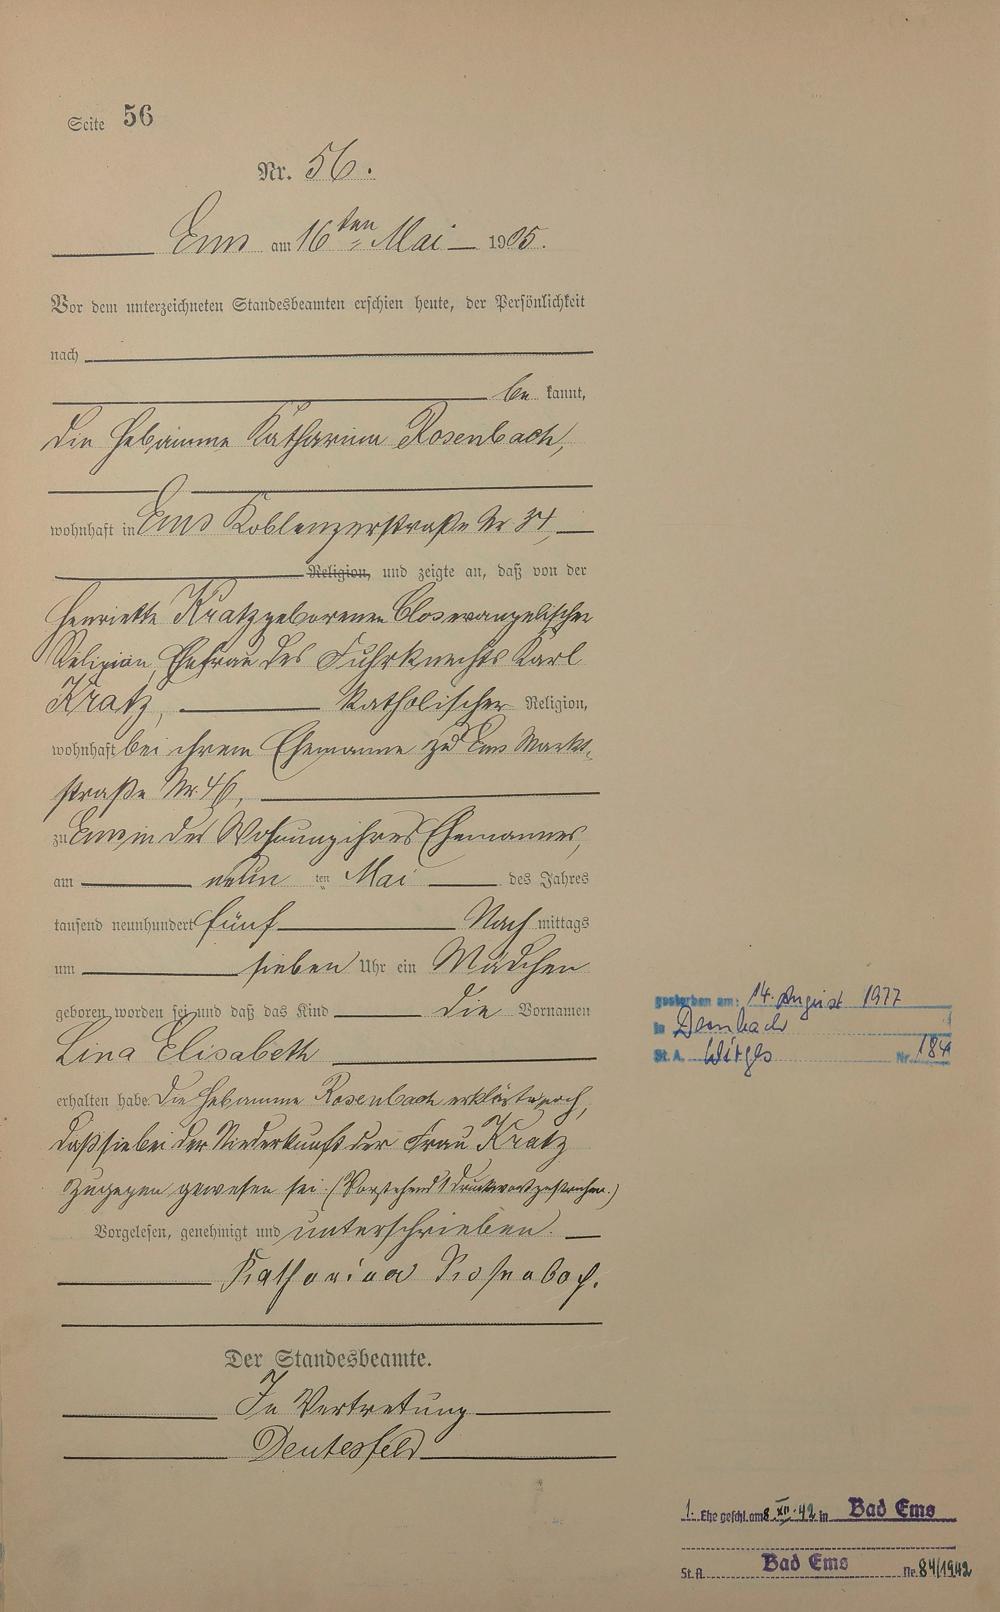 Seite 56
Nr. 56.
Ems am 16ten Mai 1905.
Vor dem unterzeichneten Standesbeamten erschien heute, der Persönlichkeit
nach
be kannt,
die Hebamme Katharina Rosenbach,
wohnhaft in Ems Koblenzerstraße Nr 34,
Religion, und zeigte an, daß von der
Henriette Kratz geborenen Clos evangelischer
Religion, Ehefrau des Fuhrknechts Karl
Kratz, katholischer Religion,
wohnhaft bei ihrem Ehemanne zu Ems Markt-
straße Nr. 46,
zu Ems in der Wohnung ihres Ehemannes,
am neun ten Mai des Jahres
tausend neunhundert fünf Nach mittags
um sieben Uhr ein Mädchen
geboren worden sei und daß das Kind die Vornamen
Lina Elisabeth
erhalten habe. Die Hebamme Rosenbach erklärte noch,
daß sie bei der Niederkunft der Frau Kratz
zugegen gewesen sei. (Vorstehend 1 Druckwort gestrichen.)
Vorgelesen, genehmigt und unterschrieben.
Katharina Rosenbach.
Der Standesbeamte.
In Vertretung
Deutesfeld
gestorben am: 14. August 1977
in Dernbach
St. A. Wirges Nr. 184
1. Ehe geschl. am 8. XII. 42 in Bad Ems
St. A. Bad Ems Nr. 84/1942